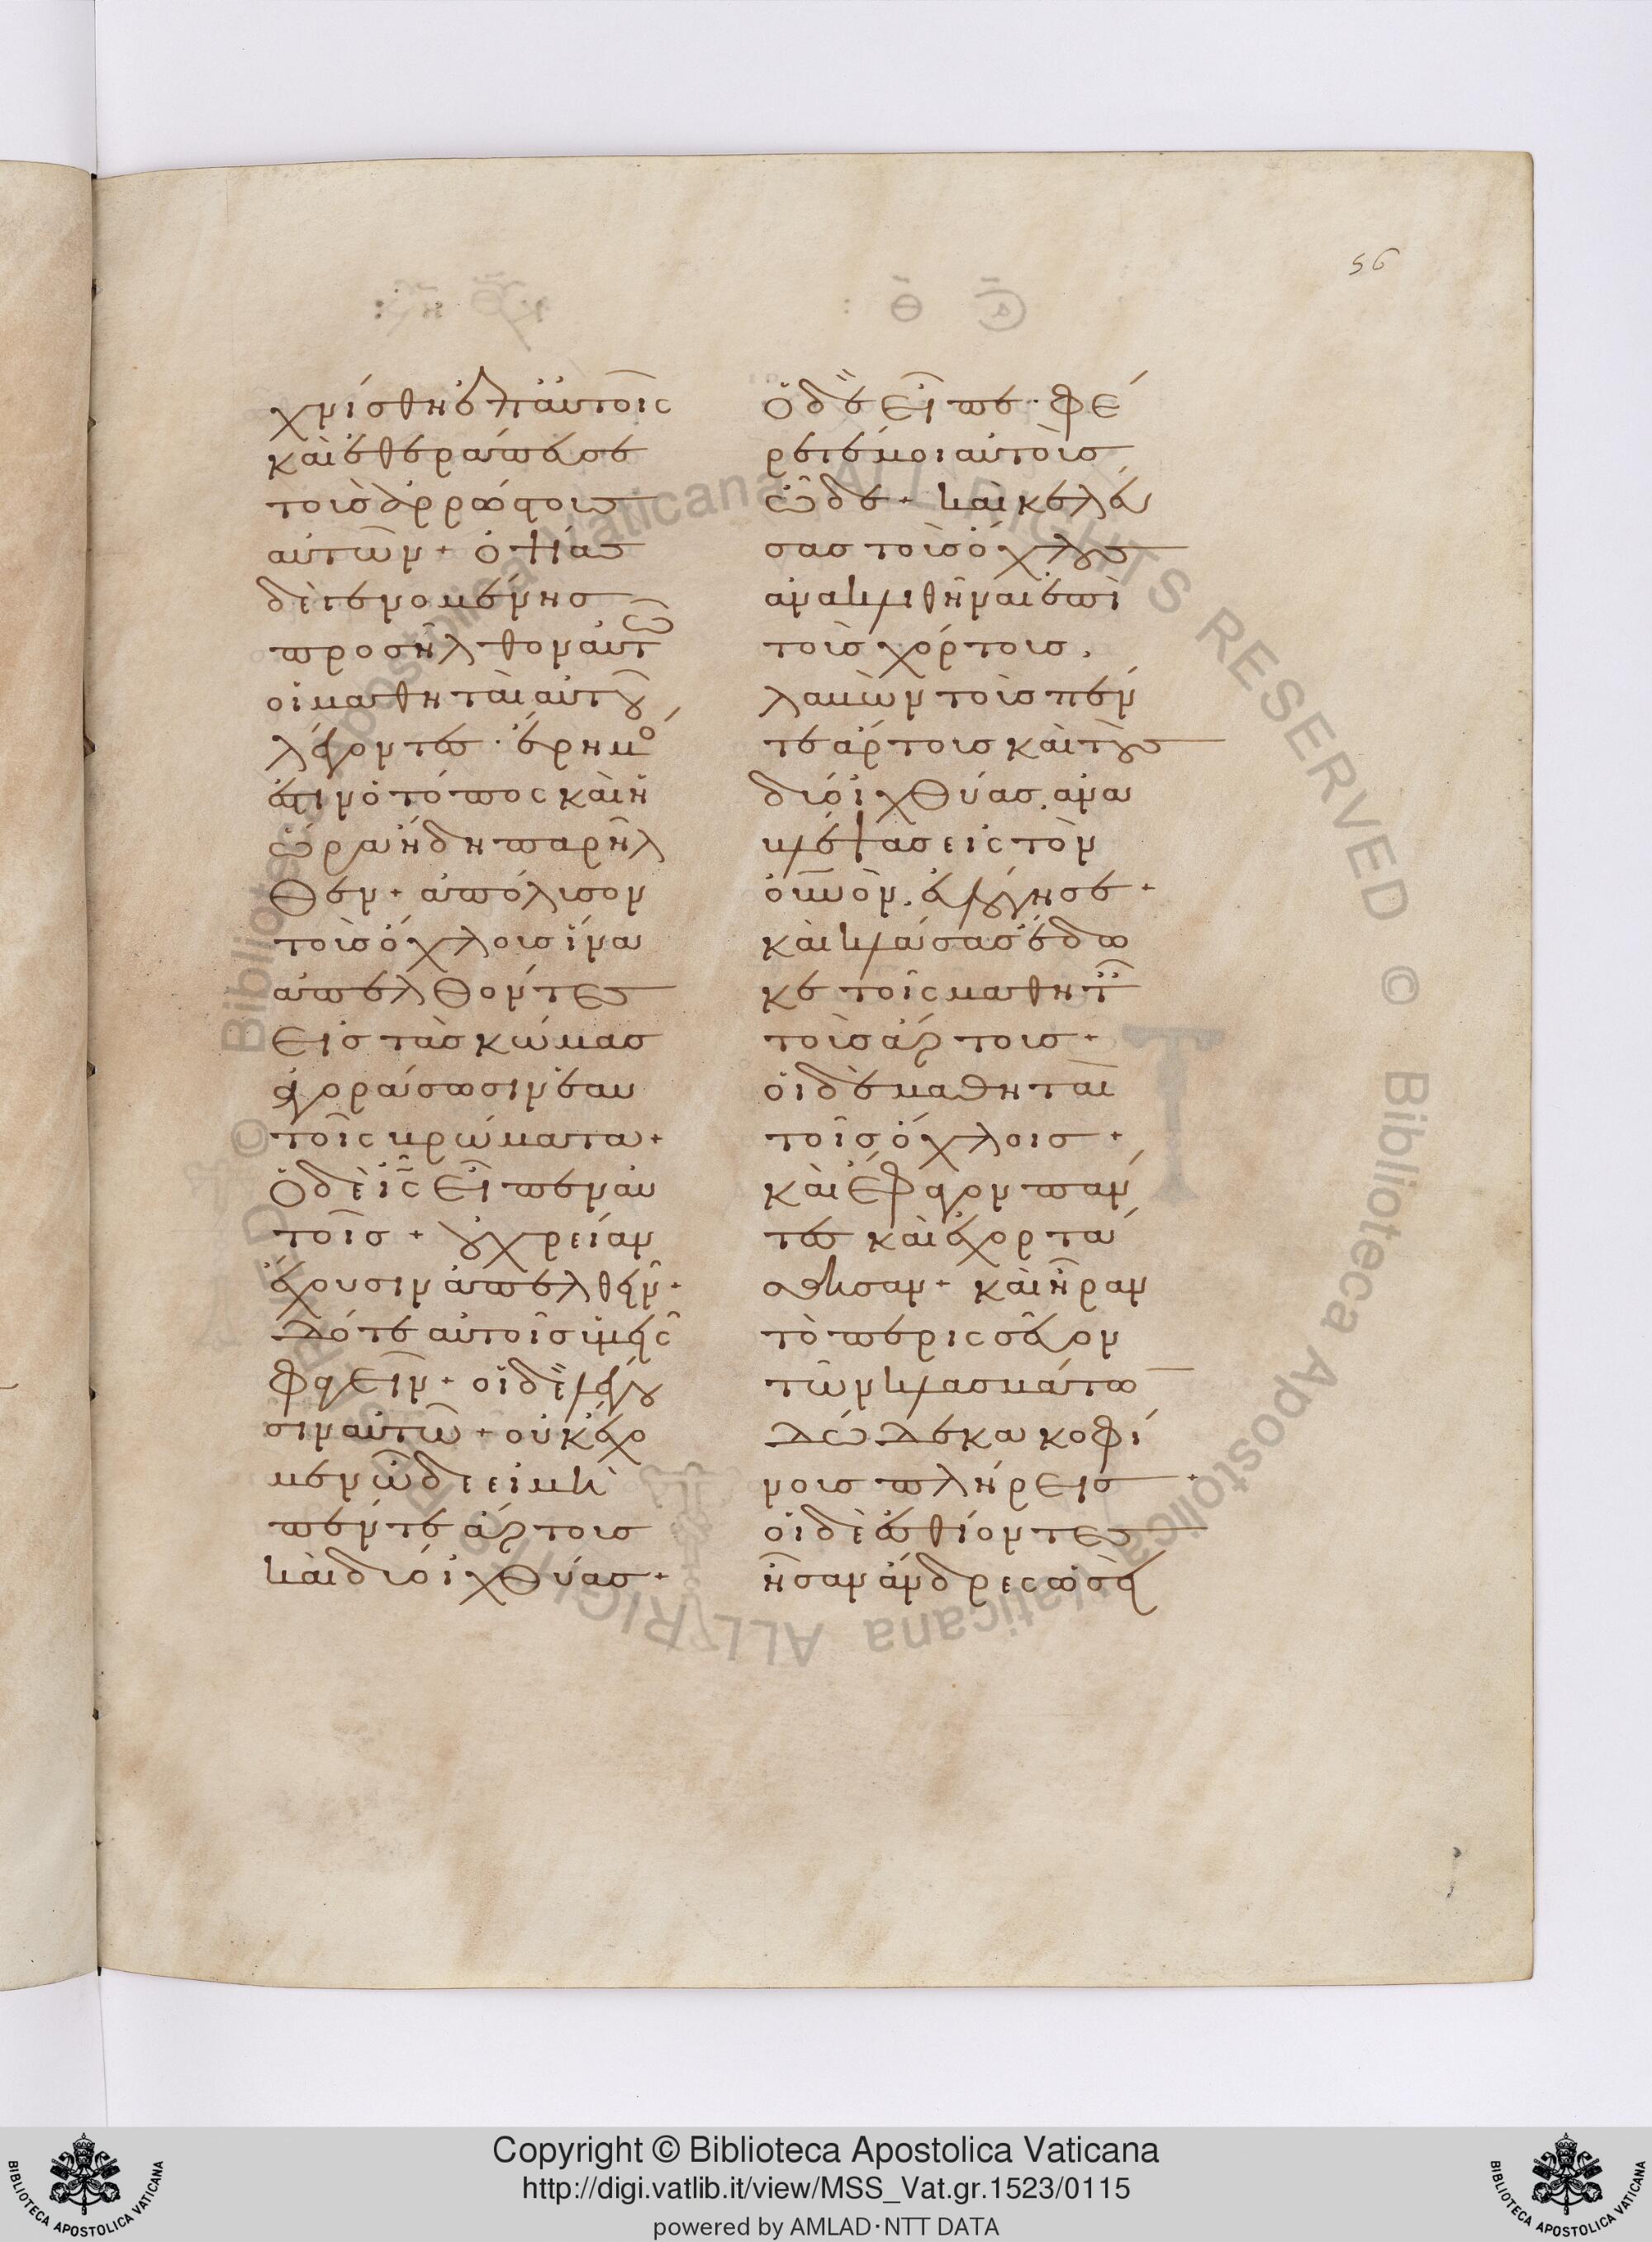 56
χνίσθη ἐπ αὐτοῖς
καὶ ἐθεράπευσε
τοὺς ἀρρώστους
αὐτῶν + ὀψίας
δὲ γενομένης
προσῆλθον αὐτῶ
οἱ μαθηταὶ αὐτοῦ
λέγοντες · ἔρημό
ἐστιν ὁ τόπος καὶ ἡ
ὥρα ἤδη παρῆλ
θεν + ἀπόλυσον
τοὺς ὄχλους ἵνα
ἀπελθόντες
εἰς τὰς κώμας
ἀγοράσωσιν ἑαυ
τοῖς βρώματα +
Ὁ δὲ ις εἶπεν αὐ
τοῖς + οὐ χρείαν
ἔχουσιν ἀπελθεῖν +
δότε αὐτοῖς ὑμεῖς
φαγεῖν + οἱ δὲ λέγου
σιν αὐτῶ + οὐκ ἔχο
μεν ὧδε εἰ μὴ
πέντε ἄρτους
καὶ δύο ἰχθύας +
Ὁ δὲ εἶπε · φέ
ρετέ μοι αὐτοὺς
ὧδε + καὶ κελεύ
σας τοὺς ὄχλους
ἀνακλιθῆναι ἐπὶ
τοὺς χόρτους,
λαβὼν τοὺς πέν
τε ἄρτους καὶ τοὺς
δύο ἰχθύας. ἀνα
βλέψας εἰς τὸν
οὐνὸν. εὐλόγησε +
καὶ κλάσας ἔδω
κε τοῖς μαθητ
τοὺς ἄρτους +
οἱ δὲ μαθηταὶ
τοῖς ὄχλοις +
καὶ ἔφαγον πάν
τες καὶ ἐχορτά
σθησαν + καὶ ἦραν
τὸ περισσεῦον
τῶν κλασμάτω
δώδεκα κοφί
νους πλήρεις +
οἱ δὲ ἐσθίοντες
ἦσαν ἄνδρες ὡσεὶ
Biblioteca Apostolica Vaticana ALL RIGHTS RESERVED ©
Biblioteca Apostolica Vaticana ALL RIGHTS RESERVED ©
BIBLIOTECA APOSTOLICA VATICANA
Copyright © Biblioteca Apostolica Vaticana
http://digi.vatlib.it/view/MSS_Vat.gr.1523/0115
powered by AMLAD·NTT DATA
BIBLIOTECA APOSTOLICA VATICANA